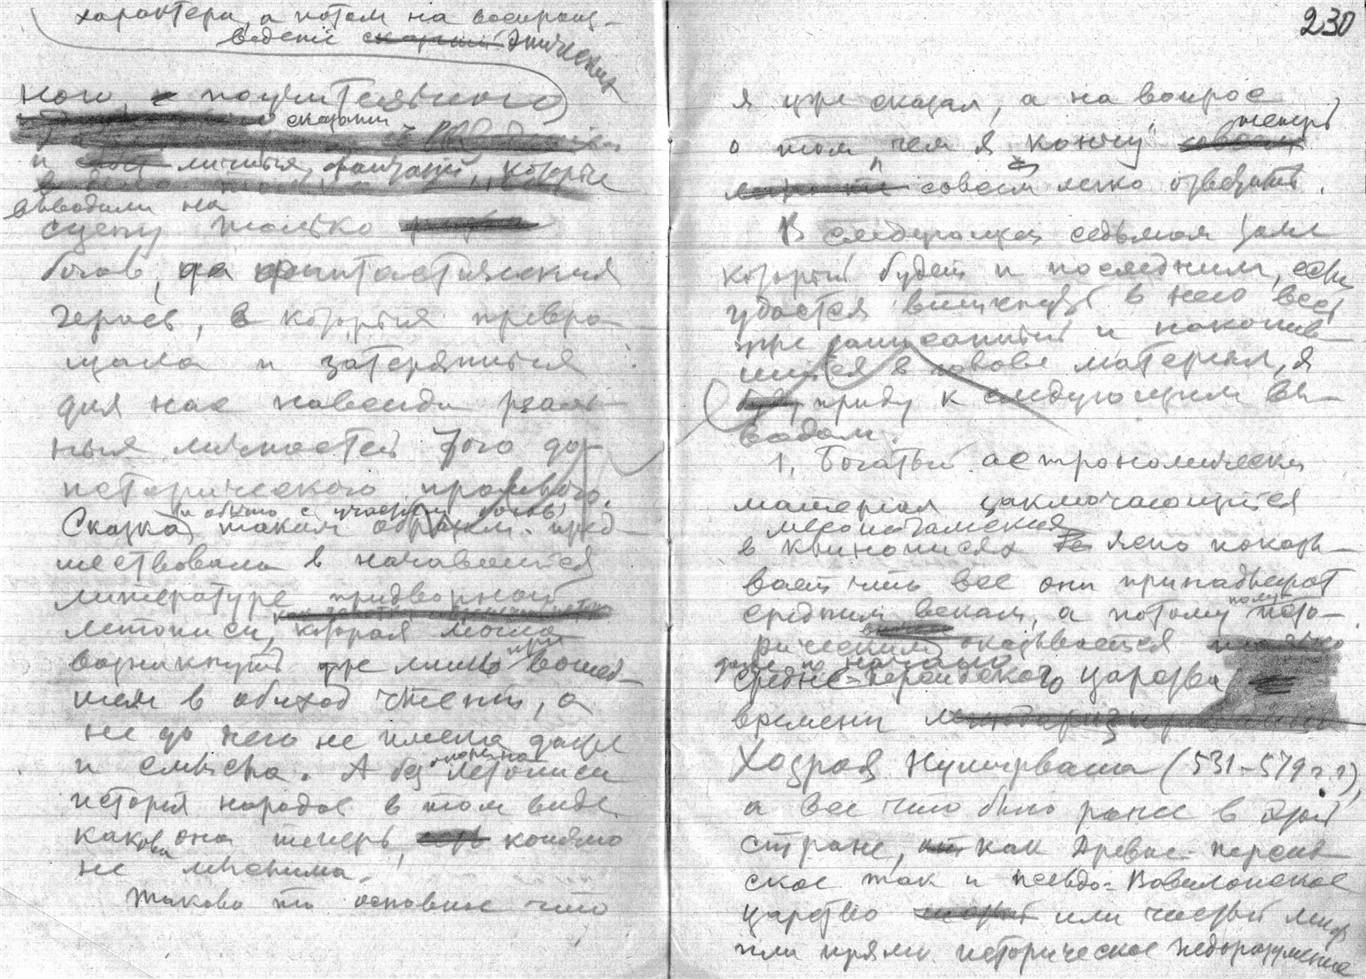 характера, а потом на воспроиз-
ведение эпических
ного, поучительного
сказки
и личных фантазий, которые
выводили на
сцену только
богов, да фантастических
героев, в которых превра-
щала и затерянных
для нас навсегда реаль-
ных личностей того до-
исторического прошлого.
и обычно с участием богов
Сказка таким образом пред-
шествовала в начавшейся
литературе придворной
летописи, которая могла
возникнуть уже лишь при вошед-
шем в обиход чтении, а
не до него не имела даже
и смысла. А без летописи
история народов в том виде
какова она теперь, конечно
не мыслима.
Таково то основное что
230
я уже сказал, а на вопрос
о том чем я кончу теперь
совсем легко ответить.
В следующем седьмом томе
который будет и последним, если
удастся втиснуть в него весь
уже записанный и накопив-
шийся в голове материал, я
приду к следующим вы-
водам.
1. Богатый астрономический
материал заключающийся
месопотамских
в клинописях ясно показы-
вает что все они принадлежат
средним векам, а потому исто-
рическим оказывается
даже по начало
средне-персидского царства
времени
Хозроя Нуширвана (531-579 г.г),
а все что было ранее в этой
стране, как древне-персид-
ское так и псевдо-Вавилонское
царство или чистый миф
или прямо историческое недоразумение